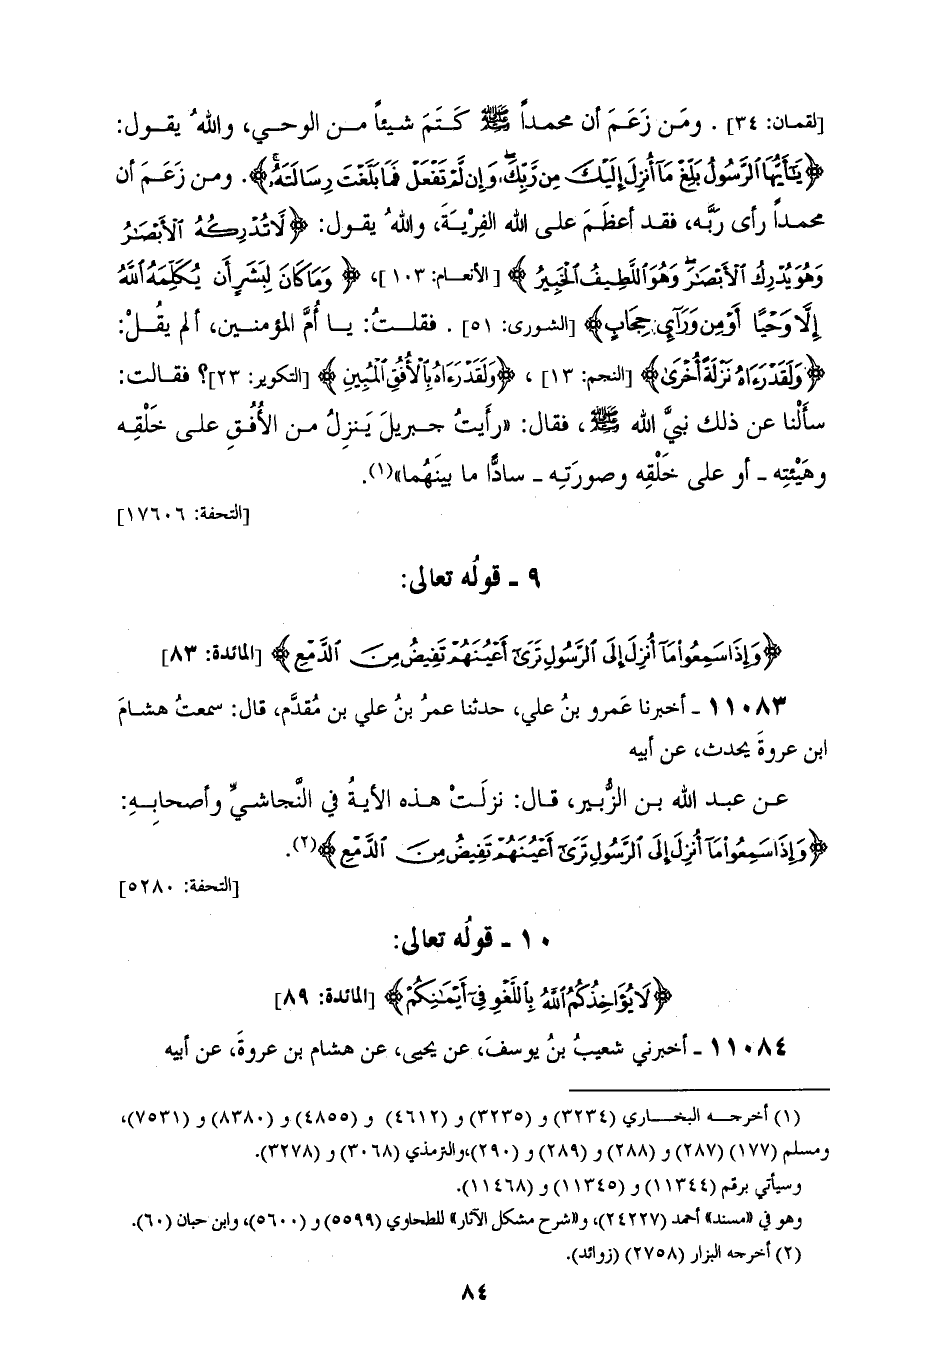 [لقمان: ٣٤] . ومَن زَعَمَ أن محمداً ﷺ كَتَمَ شيئاً من الوحي، واللهُ يقول:
﴿يَٰٓأَيُّهَا ٱلرَّسُولُ بَلِّغْ مَآ أُنزِلَ إِلَيْكَ مِن رَّبِّكَ ۖ وَإِن لَّمْ تَفْعَلْ فَمَا بَلَّغْتَ رِسَالَتَهُۥ ۚ﴾. ومن زَعَمَ أن
محمداً رأى رَبَّه، فقد أعظَمَ على الله الفِرْيَةَ، واللهُ يقول: ﴿لَّا تُدْرِكُهُ ٱلْأَبْصَٰرُ
وَهُوَ يُدْرِكُ ٱلْأَبْصَٰرَ ۖ وَهُوَ ٱللَّطِيفُ ٱلْخَبِيرُ﴾ [الأنعام: ١٠٣]، ﴿ وَمَا كَانَ لِبَشَرٍ أَن يُكَلِّمَهُ ٱللَّهُ
إِلَّا وَحْيًا أَوْ مِن وَرَآئِ حِجَابٍ﴾ [الشورى: ٥١] . فقلتُ: يا أُمَّ المؤمنين، ألم يقُلْ:
﴿وَلَقَدْ رَءَاهُ نَزْلَةً أُخْرَىٰ﴾ [النجم: ١٣] ، ﴿وَلَقَدْ رَءَاهُ بِٱلْأُفُقِ ٱلْمُبِينِ ﴾ [التكوير: ٢٣]؟ فقالت:
سأَلْنا عن ذلك نبيَّ الله ﷺ، فقال: «رأيتُ جبريلَ يَنزِلُ من الأُفُقِ على خَلْقِه
وهَيْئتِه ـ أو على خَلْقِه وصورَتِه ـ سادًّا ما بينَهُما»(١).
[التحفة: ١٧٦٠٦]
٩ ـ قولُه تعالى:
﴿وَإِذَا سَمِعُوا۟ مَآ أُنزِلَ إِلَى ٱلرَّسُولِ تَرَىٰٓ أَعْيُنَهُمْ تَفِيضُ مِنَ ٱلدَّمْعِ ﴾ [المائدة: ٨٣]
١١٠٨٣ ـ أخبرنا عَمرو بنُ علي، حدثنا عمرُ بنُ علي بن مُقدَّم، قال: سمعتُ هشامَ
ابن عروةَ يحدث، عن أبيه
عن عبد الله بن الزُّبير، قال: نزلَتْ هذه الأيةُ في النَّجاشيِّ وأصحابِهِ:
﴿وَإِذَا سَمِعُوا۟ مَآ أُنزِلَ إِلَى ٱلرَّسُولِ تَرَىٰٓ أَعْيُنَهُمْ تَفِيضُ مِنَ ٱلدَّمْعِ ﴾(٢).
[التحفة: ٥٢٨٠]
١٠ ـ قولُه تعالى:
﴿لَا يُؤَاخِذُكُمُ ٱللَّهُ بِٱللَّغْوِ فِىٓ أَيْمَٰنِكُمْ﴾ [المائدة: ٨٩]
١١٠٨٤ ـ أخبرني شعيبُ بنُ يوسفَ، عن يحيى، عن هشام بن عروةَ، عن أبيه
(١) أخرجه البخاري (٣٢٣٤) و (٣٢٣٥) و (٤٦١٢) و (٤٨٥٥) و (٨٣٨٠) و (٧٥٣١)،
ومسلم (١٧٧) (٢٨٧) و (٢٨٨) و (٢٨٩) و (٢٩٠)،والترمذي (٣٠٦٨) و (٣٢٧٨).
وسيأتي برقم (١١٣٤٤) و (١١٣٤٥) و (١١٤٦٨).
وهو في «مسند» أحمد (٢٤٢٢٧)، و«شرح مشكل الآثار» للطحاوي (٥٥٩٩) و (٥٦٠٠)، وابن حبان (٦٠).
(٢) أخرجه البزار (٢٧٥٨) (زوائد).
٨٤